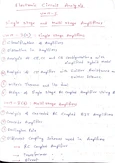 Electronic Circuit Analysis
UNIT-I
Single stage and Multi stage Amplifiers
UNIT-I Single stage Amplifiers
Classification of Amplifiers
Distortion in Amplifiers
Analysis of CE, CC and CB configurations with simplified Hybrid Model
Analysis of CE amplifier with Emitter Resistance and Emitter follower
Miller's Theorem and its dual
Design of Single Stage RC coupled Amplifier Using BJT
Multi stage Amplifiers
Analysis of Cascaded RC Coupled BJT Amplifiers
Cascode Amplifier
Darlington Pair
Different Coupling Schemes used in Amplifiers
RC Coupled Amplifier
Transformer
Direct